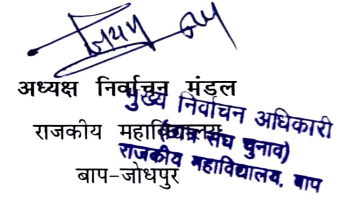 अध्यक्ष निर्वाचन मंडल
राजकीय महाविद्यालय
बाप-जोधपुर
मुख्य निर्वाचन अधिकारी
(छात्र संघ चुनाव)
राजकीय महाविद्यालय, बाप